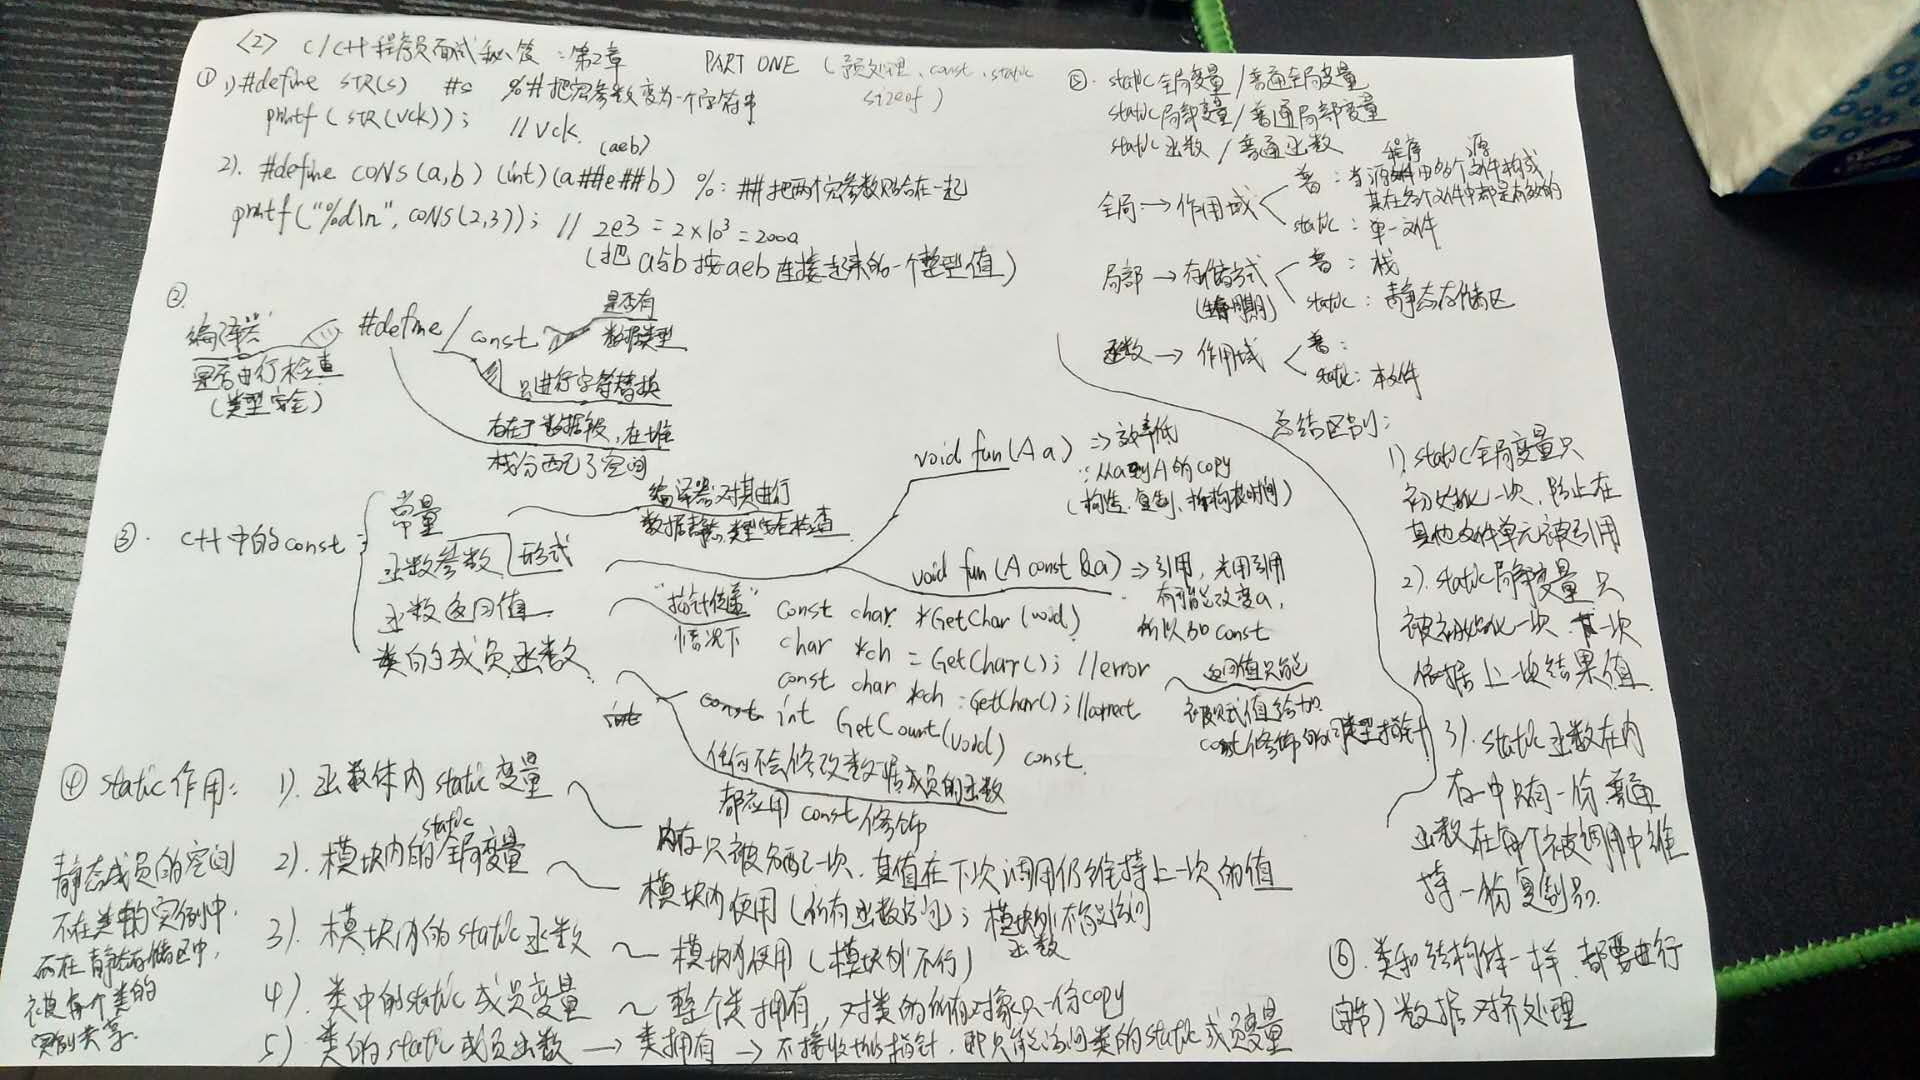 <2> C/C++程序员面试秘笈：第2章
PART ONE (预处理、const、static
sizeof)
① 1) #define STR(s) #s %#把宏参数变为一个字符串
printf(STR(vck)); //vck.
(aeb)
2). #define CONS(a,b) (int)(a##e##b) %: ##把两个宏参数贴合在一起
printf("%d\n", CONS(2,3)); // 2e3 = 2×10³ = 2000
(把a与b按aeb连接起来的一个整型值)
②.
#define / const
是否有
数据类型
编译器
是否进行检查
(类型安全)
只进行字符替换
存在于数据段,在堆
栈分配了空间
③. C++中的const
常量
函数参数 形式
函数返回值
类的成员函数
编译器对其进行
数据静态类型安全检查
void fun(A a) => 效率低
∵从a到A的copy
(构造、复制、析构花时间)
void fun(A const &a) => 引用, 光用引用
有可能改变a,
所以加const
"指针传递"
情况下
const char *GetChar(void)
char *ch = GetChar(); //error
const char *ch = GetChar(); //correct
返回值只能
被赋值给加
const修饰的同类型指针
int GetCount(void) const
任何不会修改数据成员的函数
都应用const修饰
④ static作用: 1). 函数体内static变量
内存只被分配一次,其值在下次调用仍维持上一次的值
2). 模块内的static全局变量
模块内使用(所有函数访问); 模块外不能访问
函数
3). 模块内的static函数 ~ 模块内使用(模块外不行)
4). 类中的static成员变量 ~ 整个类拥有, 对类的所有对象只一份copy
5). 类的static成员函数 → 类拥有 → 不接收this指针, 即只能访问类的static成员变量
静态成员的空间
不在类的实例中,
而在静态存储区中,
被每个类的
实例共享.
⑤. static全局变量/普通全局变量
static局部变量/普通局部变量
static函数/普通函数
程序 源
全局→作用域
普: 当源文件由多个文件构成
其在各个文件中都是有效的
static: 单一文件
局部→存储方式
(生存周期)
普: 栈
static: 静态存储区
函数→作用域
普:
static: 本文件
总结区别:
1). static全局变量只
初始化一次,防止在
其他文件单元被引用
2). static局部变量只
被初始化一次,下一次
依据上一次结果值
3). static函数在内
存中只有一份,普通
函数在每个被调用中维
持一份复制品.
⑥. 类和结构体一样,都要进行
(字节)数据对齐处理